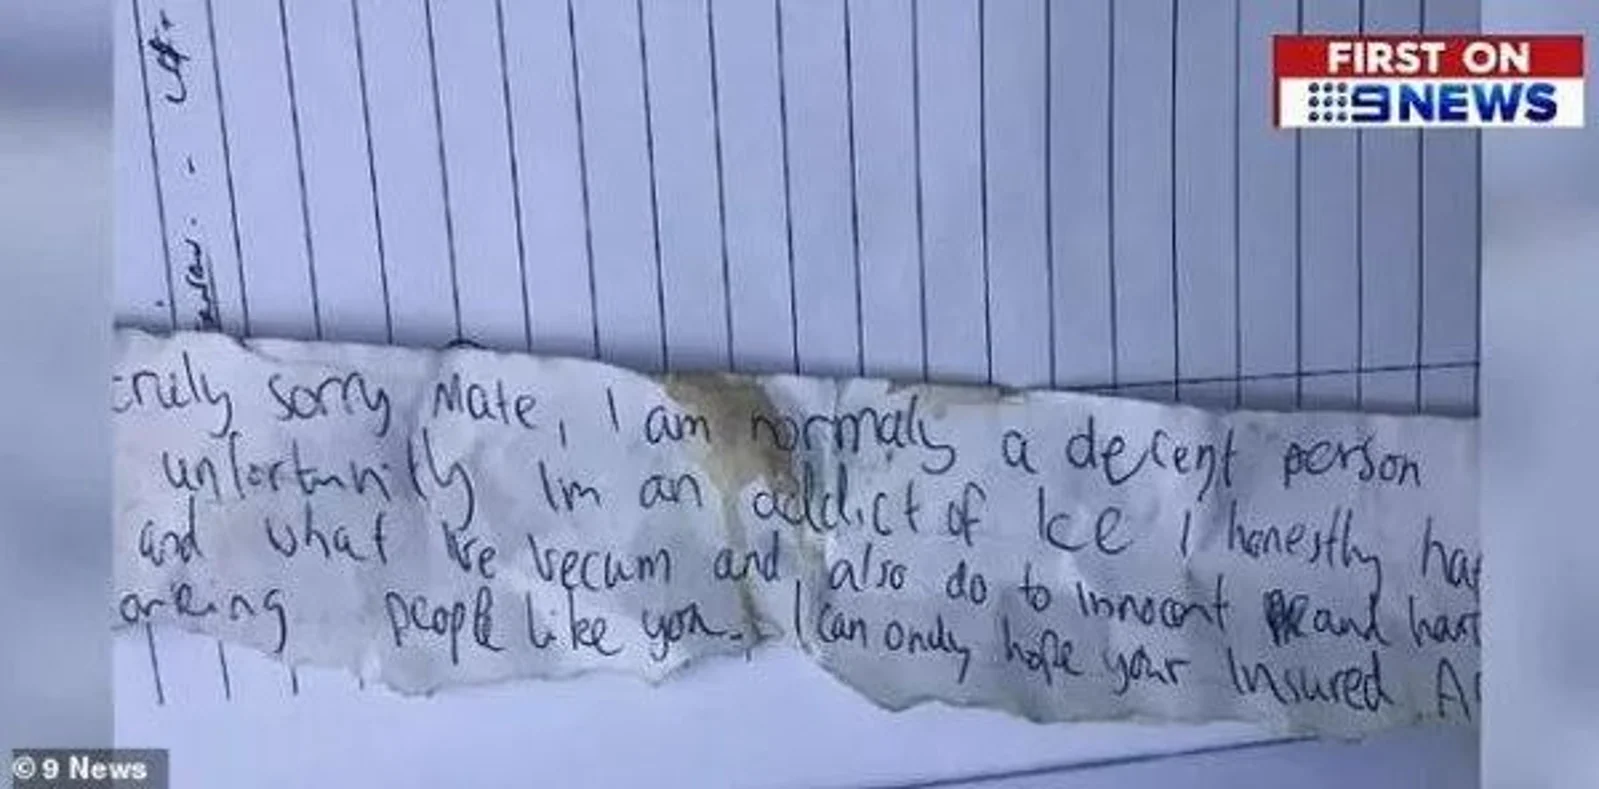 FIRST ON
9NEWS
truly sorry Mate, I am normaly a decent person
unfortunitly Im an addict of Ice I honestly hat
and what I've becum and also do to innocent and hard
orking people like you. I can only hope your Insured A
© 9 News